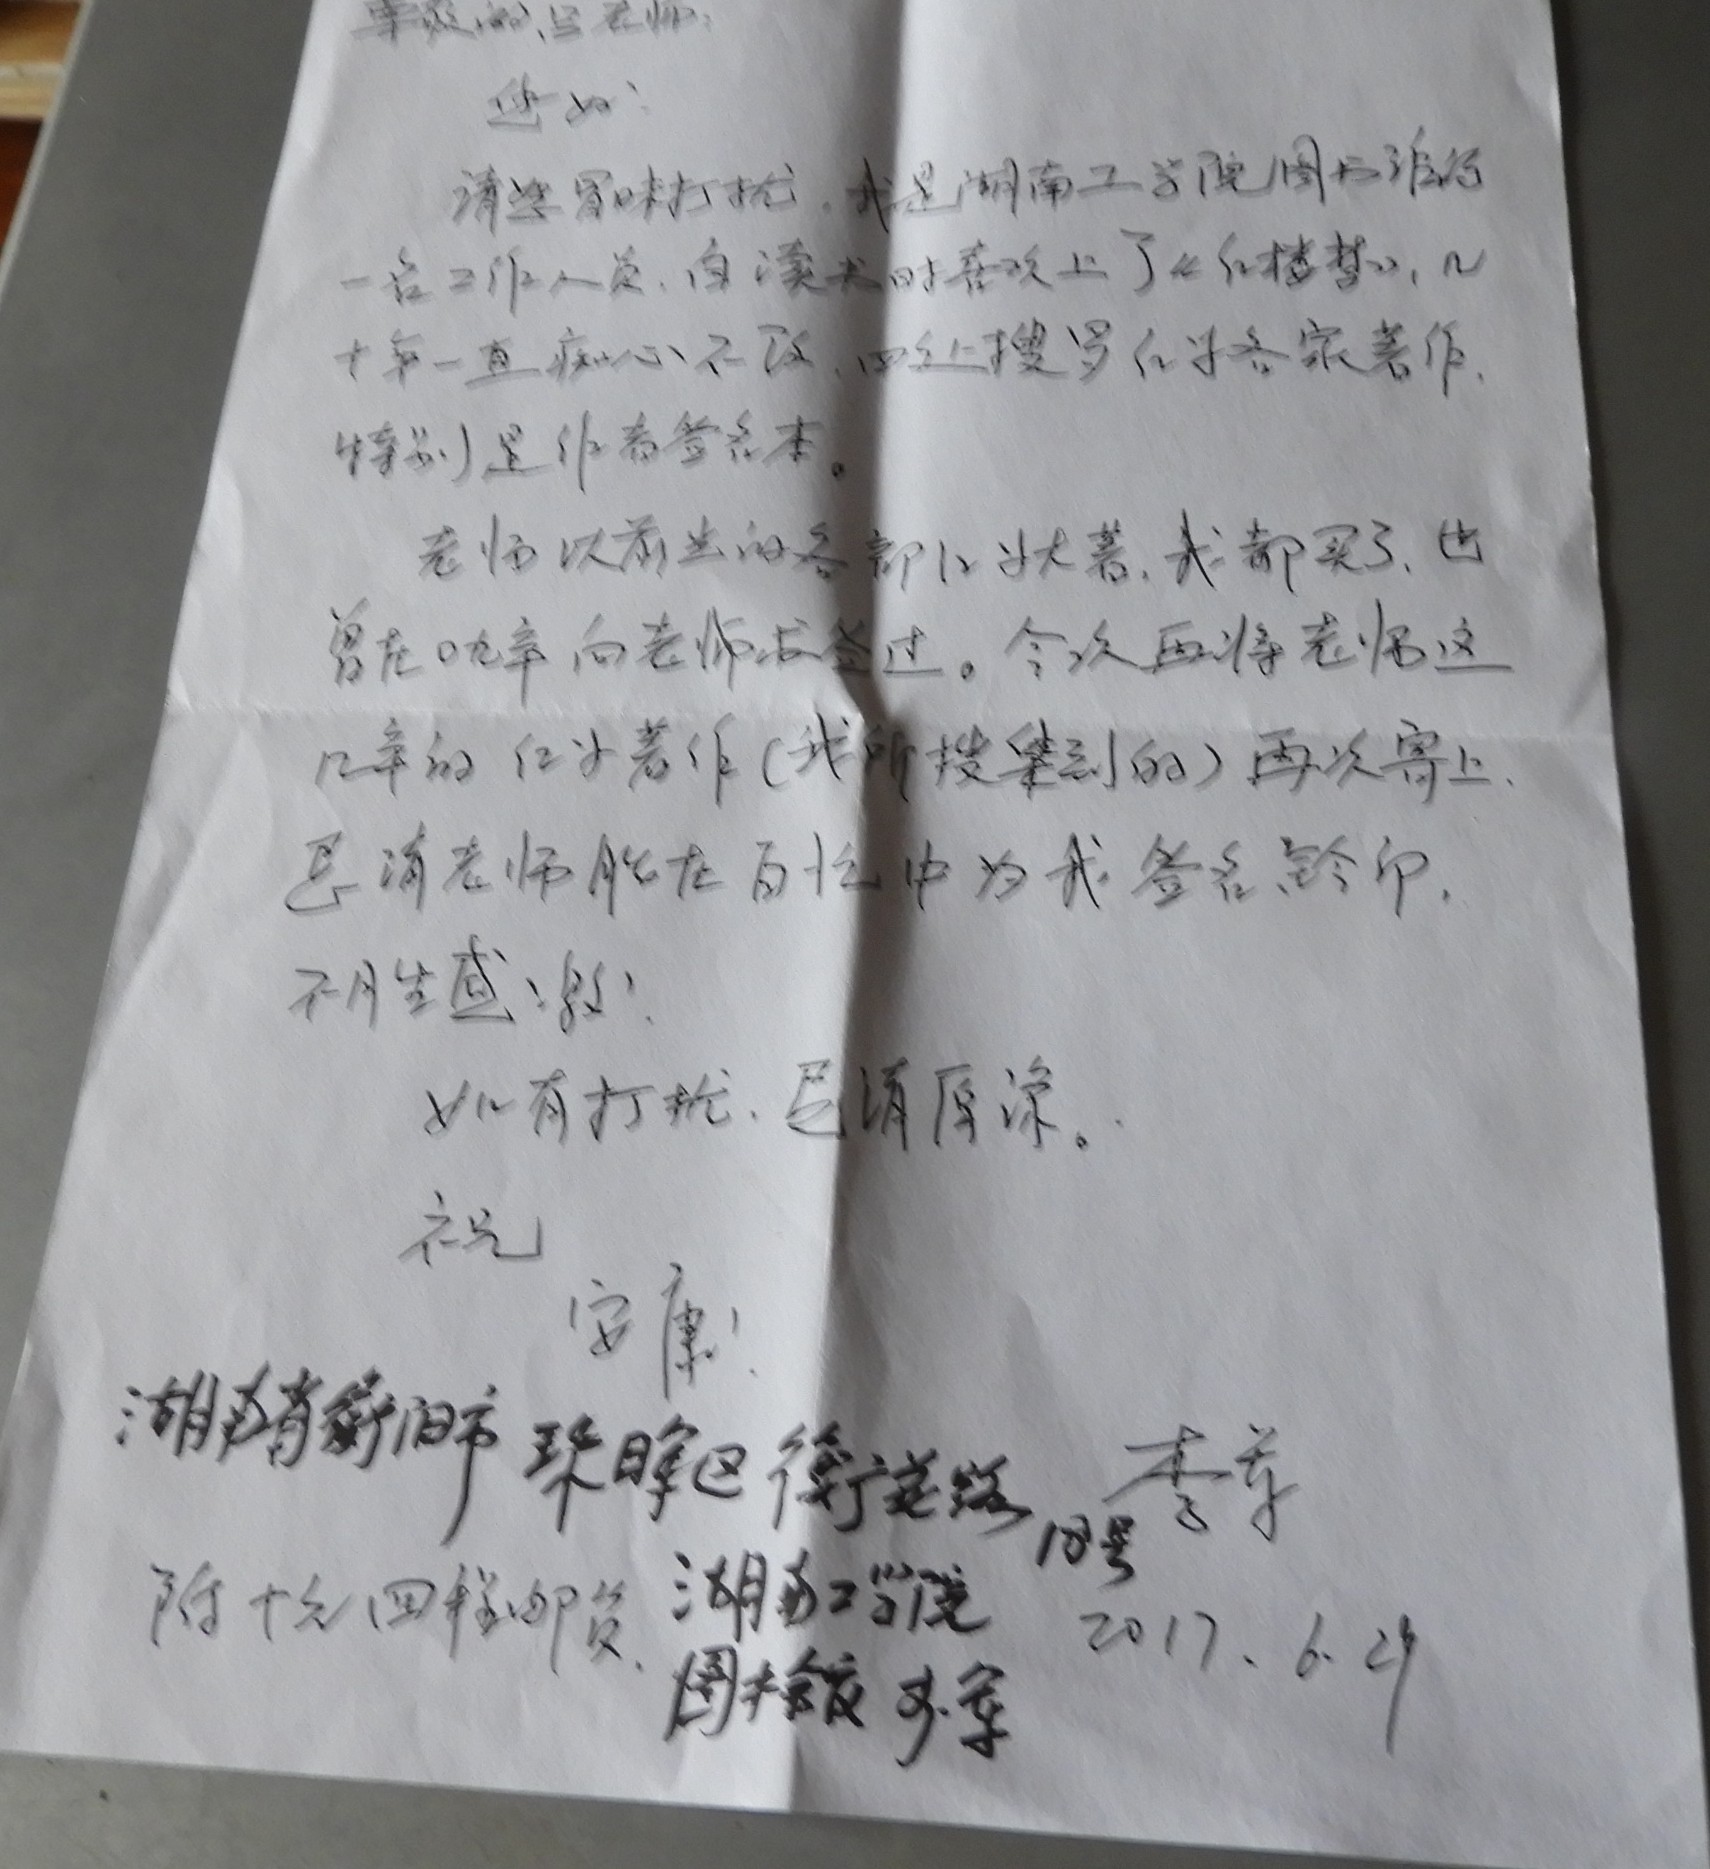 尊敬的吕老师:
您好!
请恕冒昧打扰,我是湖南工学院图书馆的
一名工作人员,自读书时喜欢上了《红楼梦》,几
十年一直痴心不改,四处搜罗红学各家著作,
特别是作者签名本。
老师以前出的各部红学大著,我都买了,也
曾在09年向老师求签过。今次再将老师这
几年的红学著作(我所搜集到的)再次寄上,
恳请老师能在百忙中为我签名、钤印,
不胜感激!
如有打扰,恳请原谅。
祝
安康!
湖南省衡阳市珠晖区衡花路18号
李军
湖南工学院
附十元回程邮资.
2017.6.29
图书馆 李军